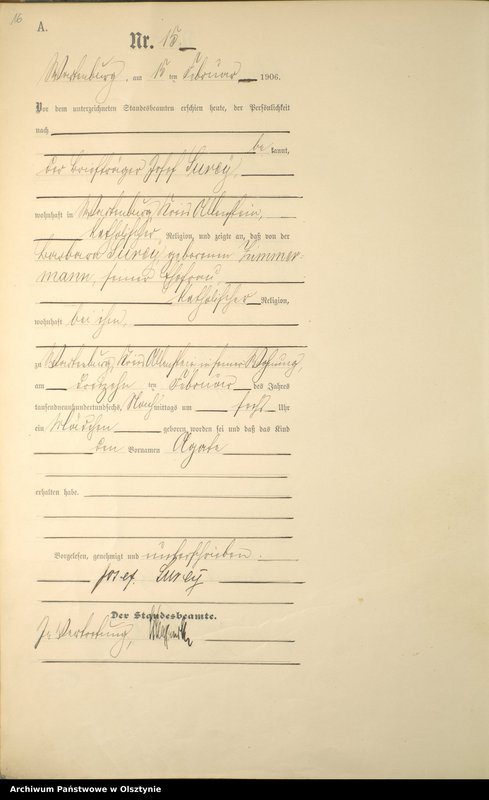 16
A.
Nr. 15.
Wartenburg, am 15 ten Februar 1906.
Vor dem unterzeichneten Standesbeamten erschien heute, der Persönlichkeit
nach
be kannt,
der Briefträger Josef
wohnhaft in Wartenburg Kreis Allenstein,
katholischer Religion, und zeigte an, daß von der
Barbara geborenen Zimmer-
mann, seiner Ehefrau,
katholischer Religion,
wohnhaft bei ihm,
zu Wartenburg, Kreis Allenstein in seiner Wohnung
am dreizehn ten Februar des Jahres
tausendneunhundertundsechs, Nachmittags um sechs Uhr
ein Mädchen geboren worden sei und daß das Kind
den Vornamen Agate
erhalten habe.
Vorgelesen, genehmigt und unterschrieben.
Josef
Der Standesbeamte.
In Vertretung,
Archiwum Państwowe w Olsztynie